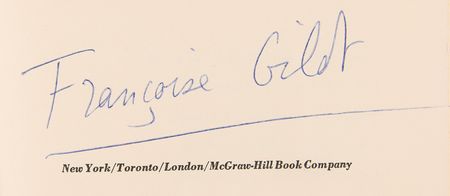 Françoise Gilot
New York/Toronto/London/McGraw-Hill Book Company